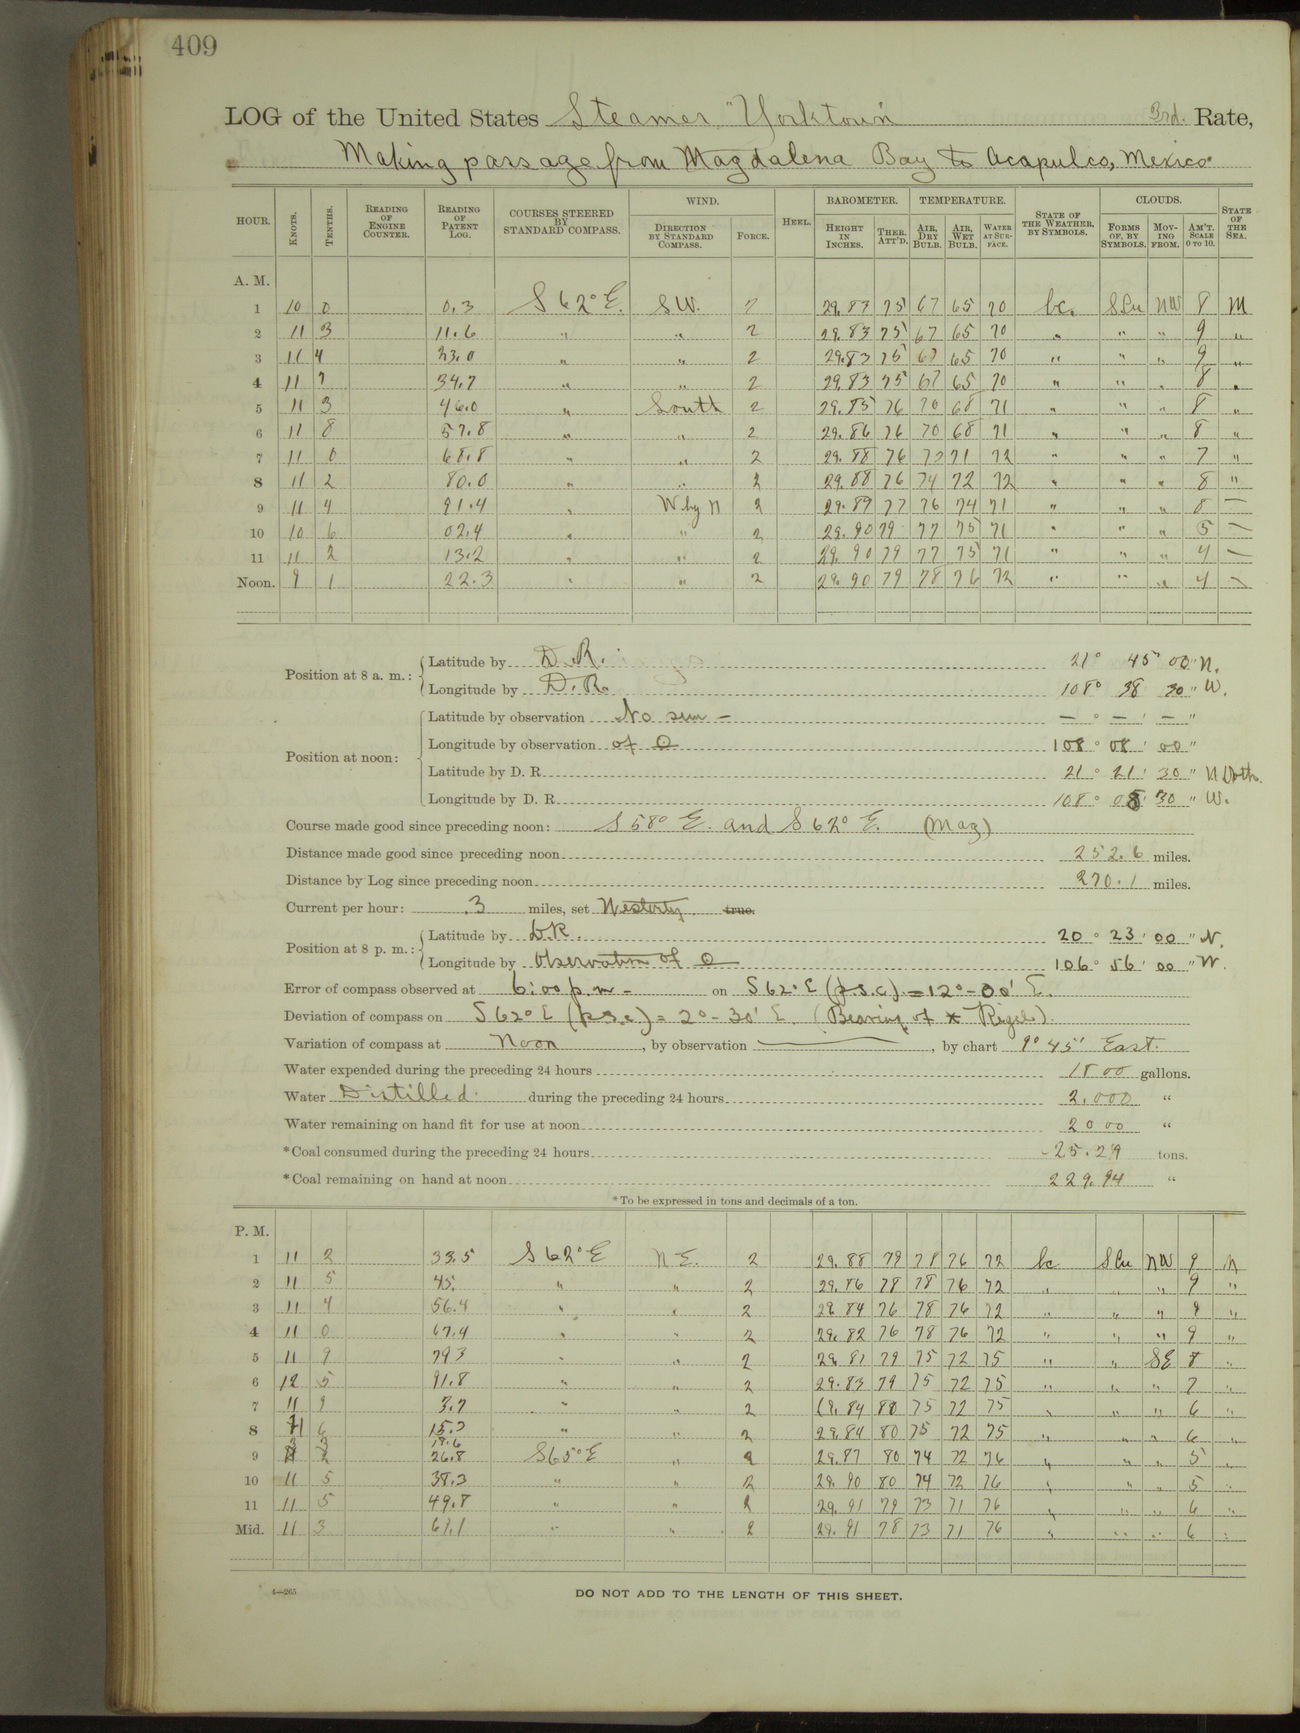 409
LOG of the United States Steamer "Yorktown" 3rd. Rate,
Making passage from Magdalena Bay to Acapulco, Mexico.
HOUR. KNOTS. TENTHS. READING OF ENGINE COUNTER. READING OF PATENT LOG. COURSES STEERED BY STANDARD COMPASS. WIND. DIRECTION BY STANDARD COMPASS. FORCE. HEEL. BAROMETER. HEIGHT IN INCHES. THER. ATT'D. TEMPERATURE. AIR, DRY BULB. AIR, WET BULB. WATER AT SURFACE. STATE OF THE WEATHER, BY SYMBOLS. CLOUDS. FORMS OF, BY SYMBOLS. MOVING FROM. AM'T. SCALE 0 TO 10. STATE OF THE SEA.
A. M.
1 10 0 0.3 S 62° E. SW. 29.83 75 67 65 70 bc. SCu NW 8 M
2 11 3 11.6 " " 2 29.83 75 67 65 70 " " " 9 "
3 11 4 23.0 " " 2 29.83 75 67 65 70 " " " 9 "
4 11 7 34.7 " " 2 29.83 75 67 65 70 " " " 8 "
5 11 3 46.0 " South 2 29.85 76 70 68 71 " " " 8 "
6 11 8 57.8 " " 2 29.86 76 70 68 71 " " " 8 "
7 11 0 68.8 " " 2 29.88 76 72 71 72 " " " 7 "
8 11 2 80.0 " " 2 29.88 76 74 72 72 " " " 8 "
9 11 4 91.4 " W by N 2 29.89 77 76 74 71 " " " 8 —
10 10 6 02.4 " " 2 29.90 79 77 75 71 " " " 5 —
11 11 2 13.2 " " 2 29.90 79 77 75 71 " " " 4 —
Noon. 9 1 22.3 " " 2 29.90 79 78 76 72 " " " 4 —
Position at 8 a. m.: Latitude by D.R. 21° 45' 00" N.
Longitude by D.R. 108° 38 30" W.
Position at noon: Latitude by observation No sun — — ° — ' — "
Longitude by observation of ☉ 108° 08' 00"
Latitude by D. R. 21° 21' 30" North.
Longitude by D. R. 108° 08' 30" W.
Course made good since preceding noon: S 58° E. and S 62° E. (Mag)
Distance made good since preceding noon 252.6 miles.
Distance by Log since preceding noon 270.1 miles.
Current per hour: .3 miles, set Westerly true.
Position at 8 p. m.: Latitude by D.R. 20° 23' 00" N.
Longitude by Observation of ☉ 106° 56' 00" W.
Error of compass observed at 6:00 p.m. – on S 62° E (p.s.c.) = 12° - 00' E.
Deviation of compass on S 62° E (p.s.c.) = 2° - 30' E. (Bearing of * Rigel).
Variation of compass at Noon, by observation ——, by chart 9° 45' East.
Water expended during the preceding 24 hours 1800 gallons.
Water Distilled during the preceding 24 hours 2,000 "
Water remaining on hand fit for use at noon 2000 "
*Coal consumed during the preceding 24 hours 25.29 tons.
*Coal remaining on hand at noon 229.94 "
*To be expressed in tons and decimals of a ton.
P. M.
1 11 2 33.5 S 62° E N E. 2 29.88 79 78 76 72 bc SCu NW 9 M
2 11 5 45. " " 2 29.86 78 78 76 72 " " " 9 "
3 11 4 56.4 " " 2 29.84 76 78 76 72 " " " 9 "
4 11 0 67.4 " " 2 29.82 76 78 76 72 " " " 9 "
5 11 9 79.3 " " 2 29.81 79 75 72 75 " " SE 8 "
6 12 5 91.8 " " 2 29.83 79 75 72 75 " " " 7 "
7 11 9 3.7 " " 2 29.84 80 75 72 75 " " " 6 "
8 11 6 15.3 " " 2 29.84 80 75 72 75 " " " 6 "
19.6
9 26.8 S 65° E " 2 29.87 80 74 72 76 " " " 5 "
10 11 5 38.3 " " 2 29.90 80 74 72 76 " " " 5 "
11 11 5 49.8 " " 2 29.91 79 73 71 76 " " " 6 "
Mid. 11 3 61.1 " " 2 29.91 78 73 71 76 " " " 6 "
4—265
DO NOT ADD TO THE LENGTH OF THIS SHEET.